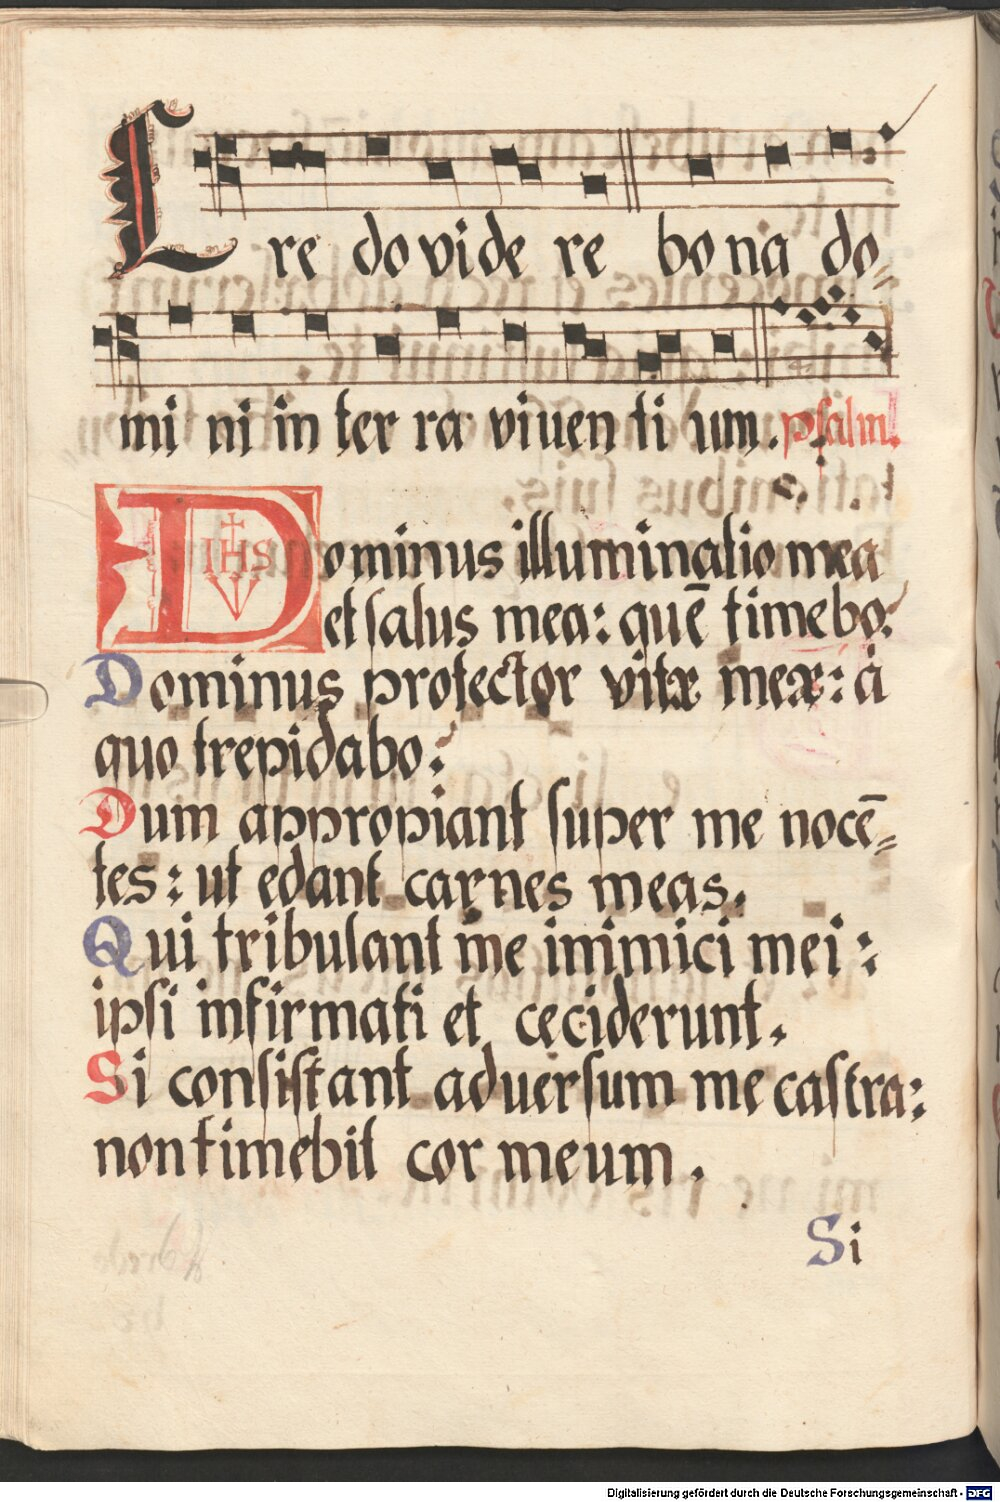 Cre do vide re bo na do-
mi ni in ter ra viuen ti um. psalm.
Dominus illuminatio mea
et salus mea: quē timebo:
Dominus protector vitæ meæ: à
quo trepidabo:
Dum appropiant super me nocē-
tes: ut edant carnes meas.
Qui tribulant me inimici mei:
ipsi infirmati et ceciderunt.
Si consistant aduersum me castra:
non timebit cor meum.
Si
IHS
Digitalisierung gefördert durch die Deutsche Forschungsgemeinschaft - DFG